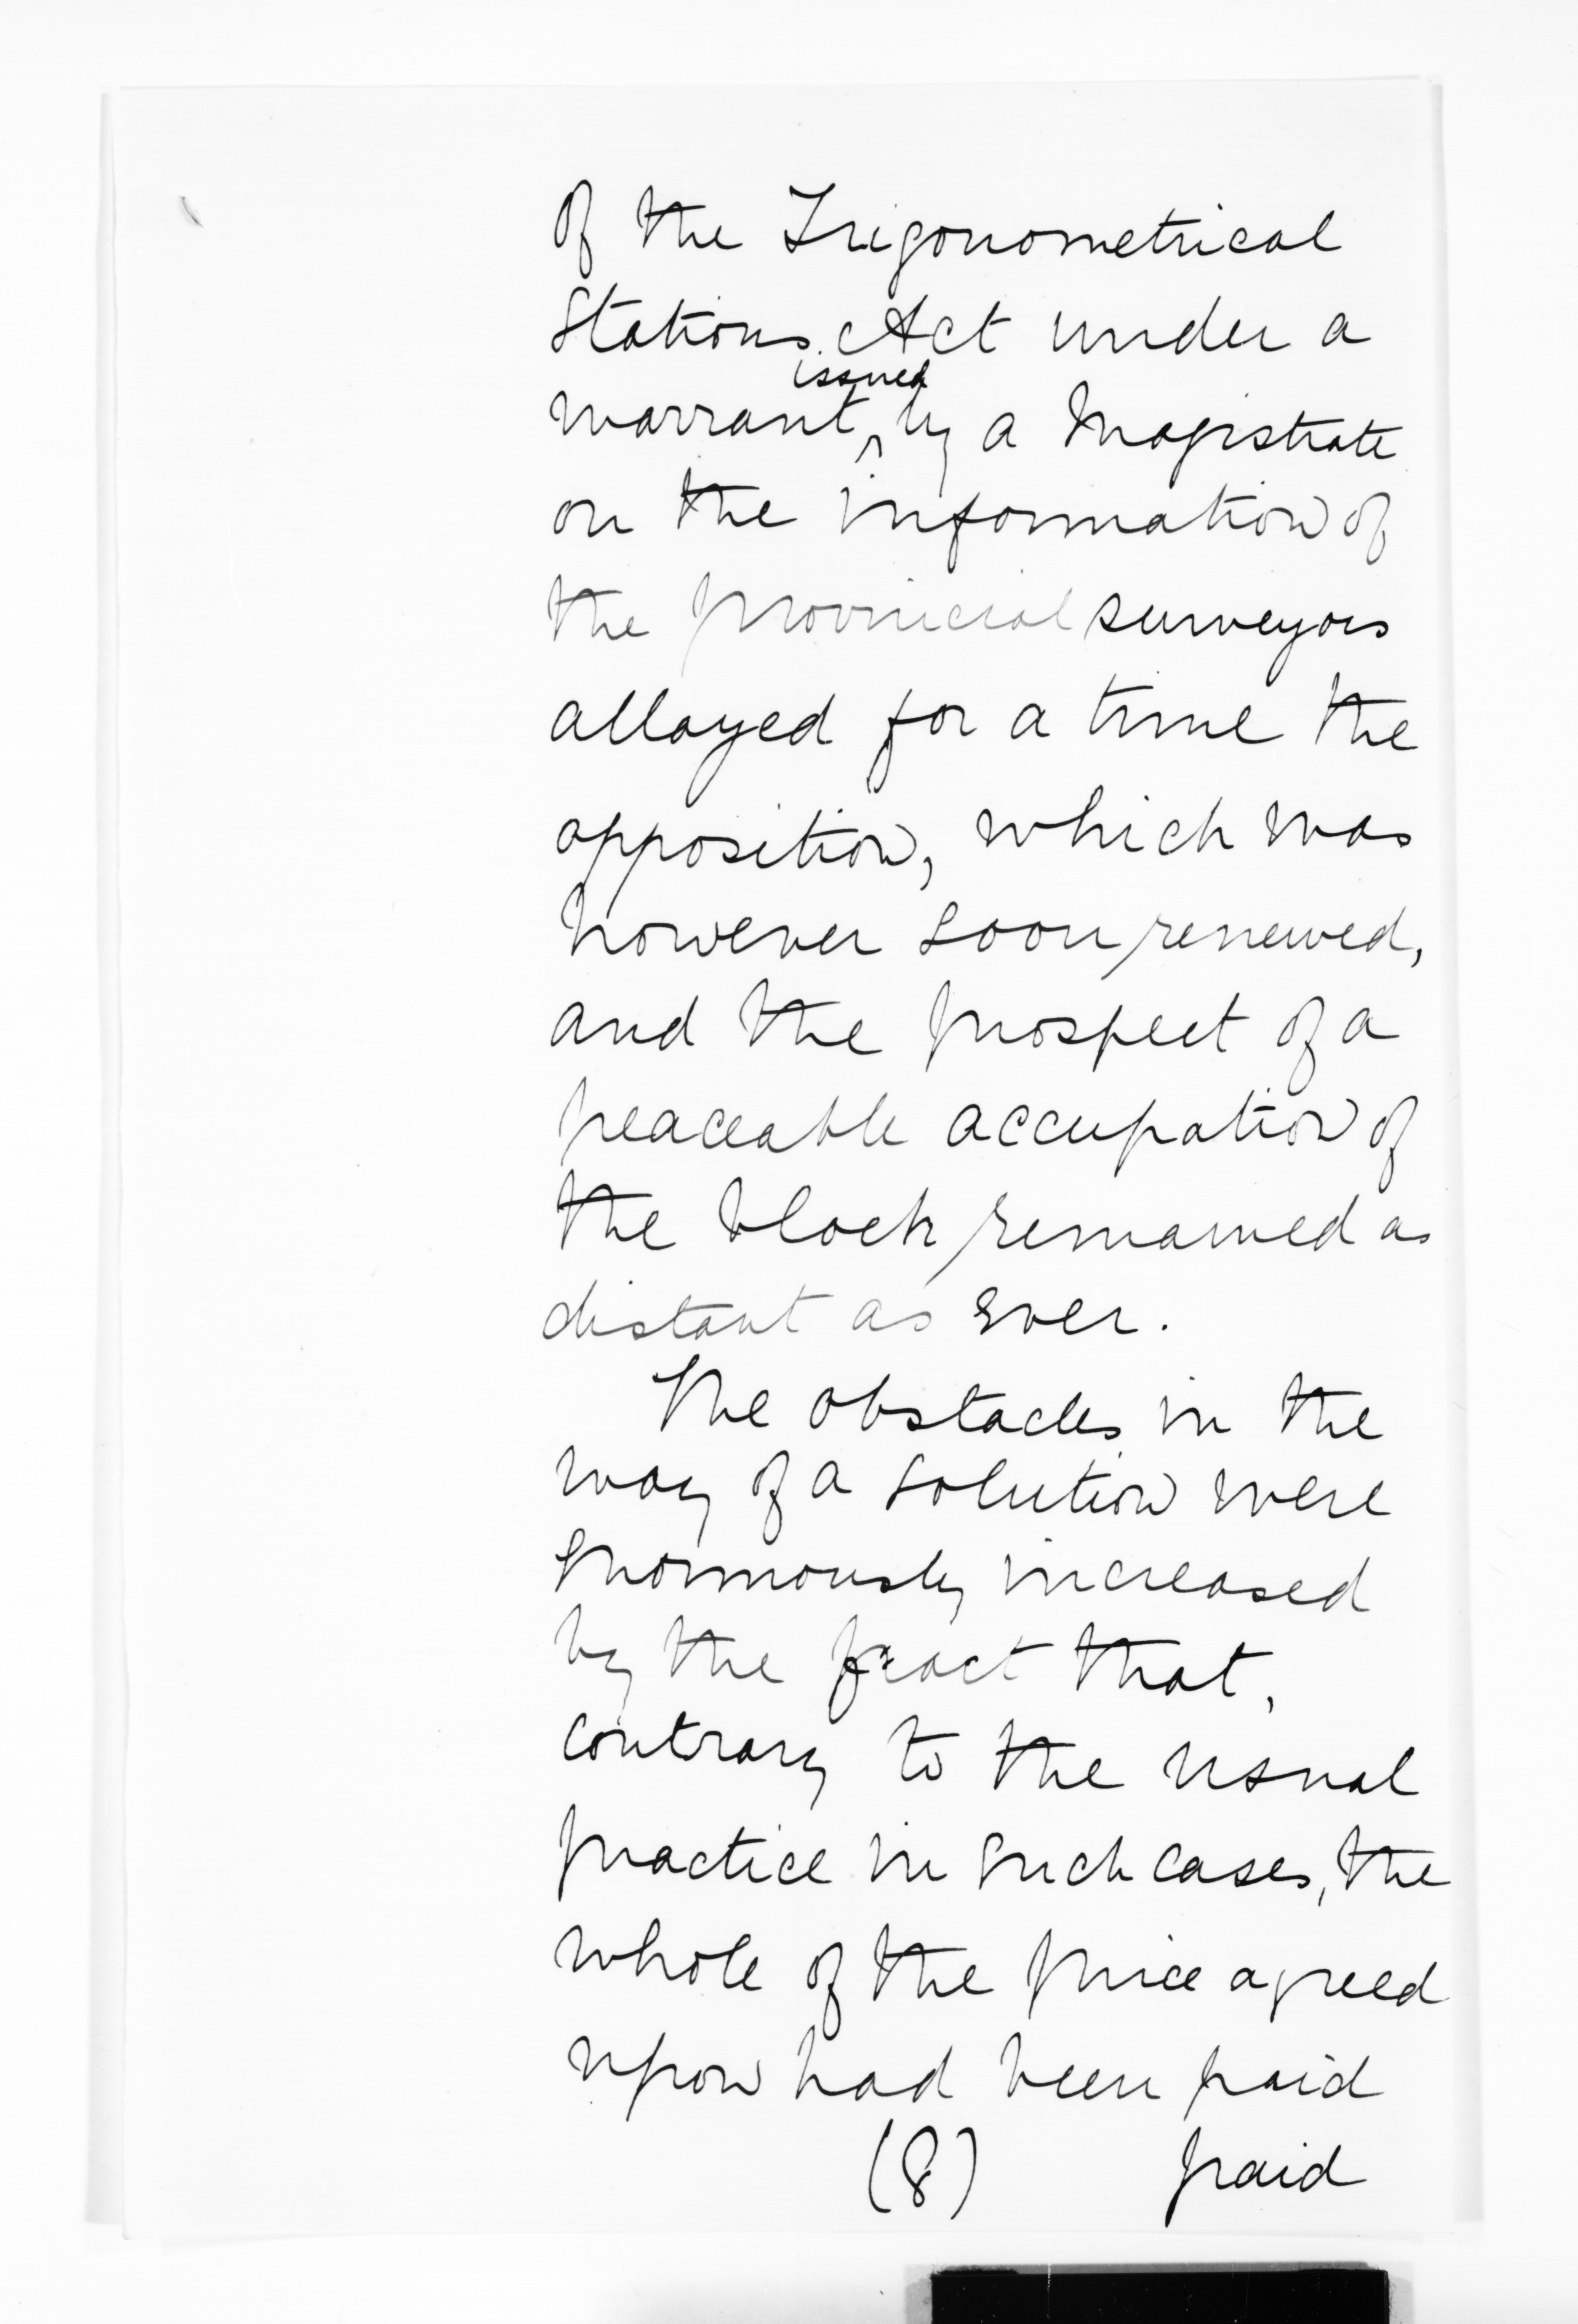 of the Trigonometrical
Stations Act under a
issued
warrant ^ by a Magistrate
on the information of
the provincial surveyors
allayed for a time the
opposition, which was
however soon renewed,
and the prospect of a
peaceable occupation of
the block remained as
distant as ever.
The obstacles in the
way of a solution were
enormously increased
by the fact that,
contrary to the usual
practice in such cases, the
whole of the price agreed
upon had been paid
(8) paid